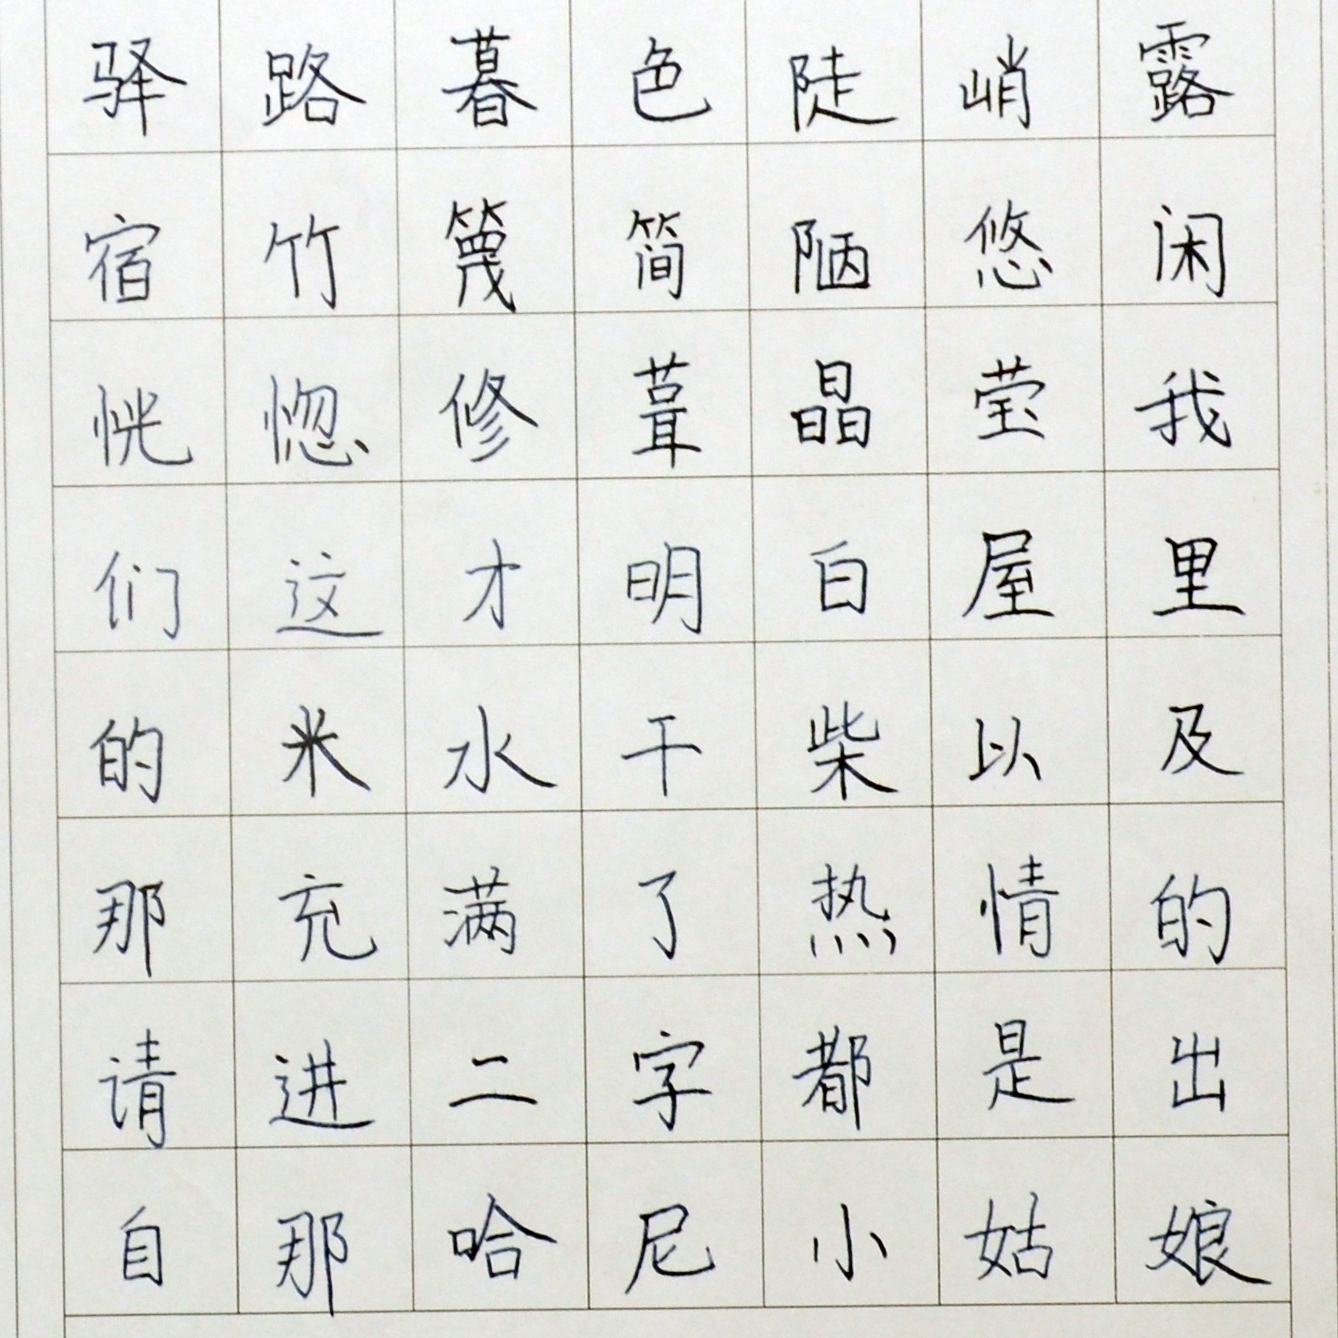 驿路暮色陡峭露
宿竹篾简陋悠闲
恍惚修葺晶莹我
们这才明白屋里
的米水干柴以及
那充满了热情的
请进二字都是出
自那哈尼小姑娘